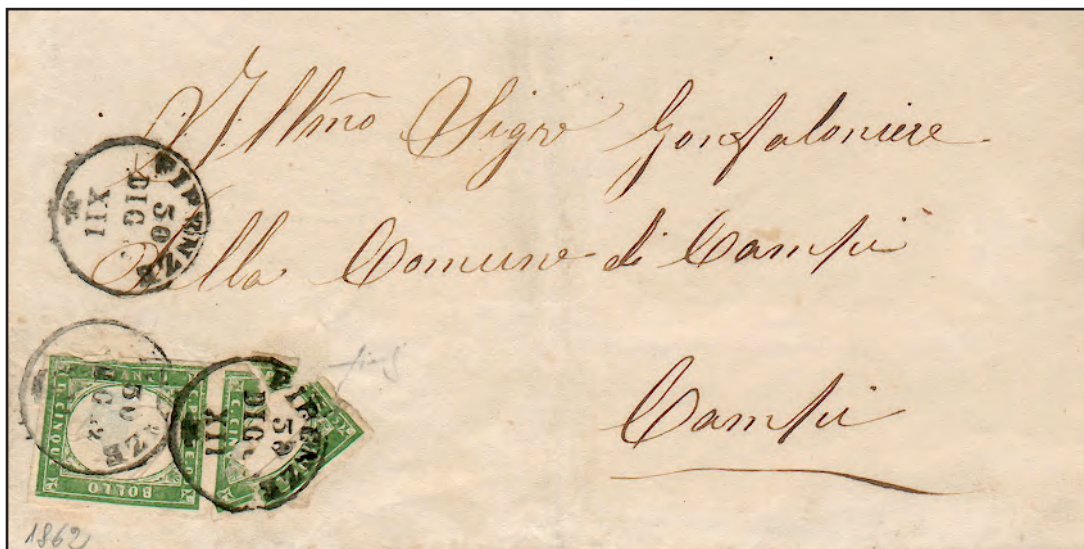 Illmo Sigre Gonfaloniere
Della Comune di Campi
Campi
FIRENZE
30
DIC
XII
FIRENZE
30
DIC
XII
C. CINQUE
BOLLO
C. CINQUE
1862